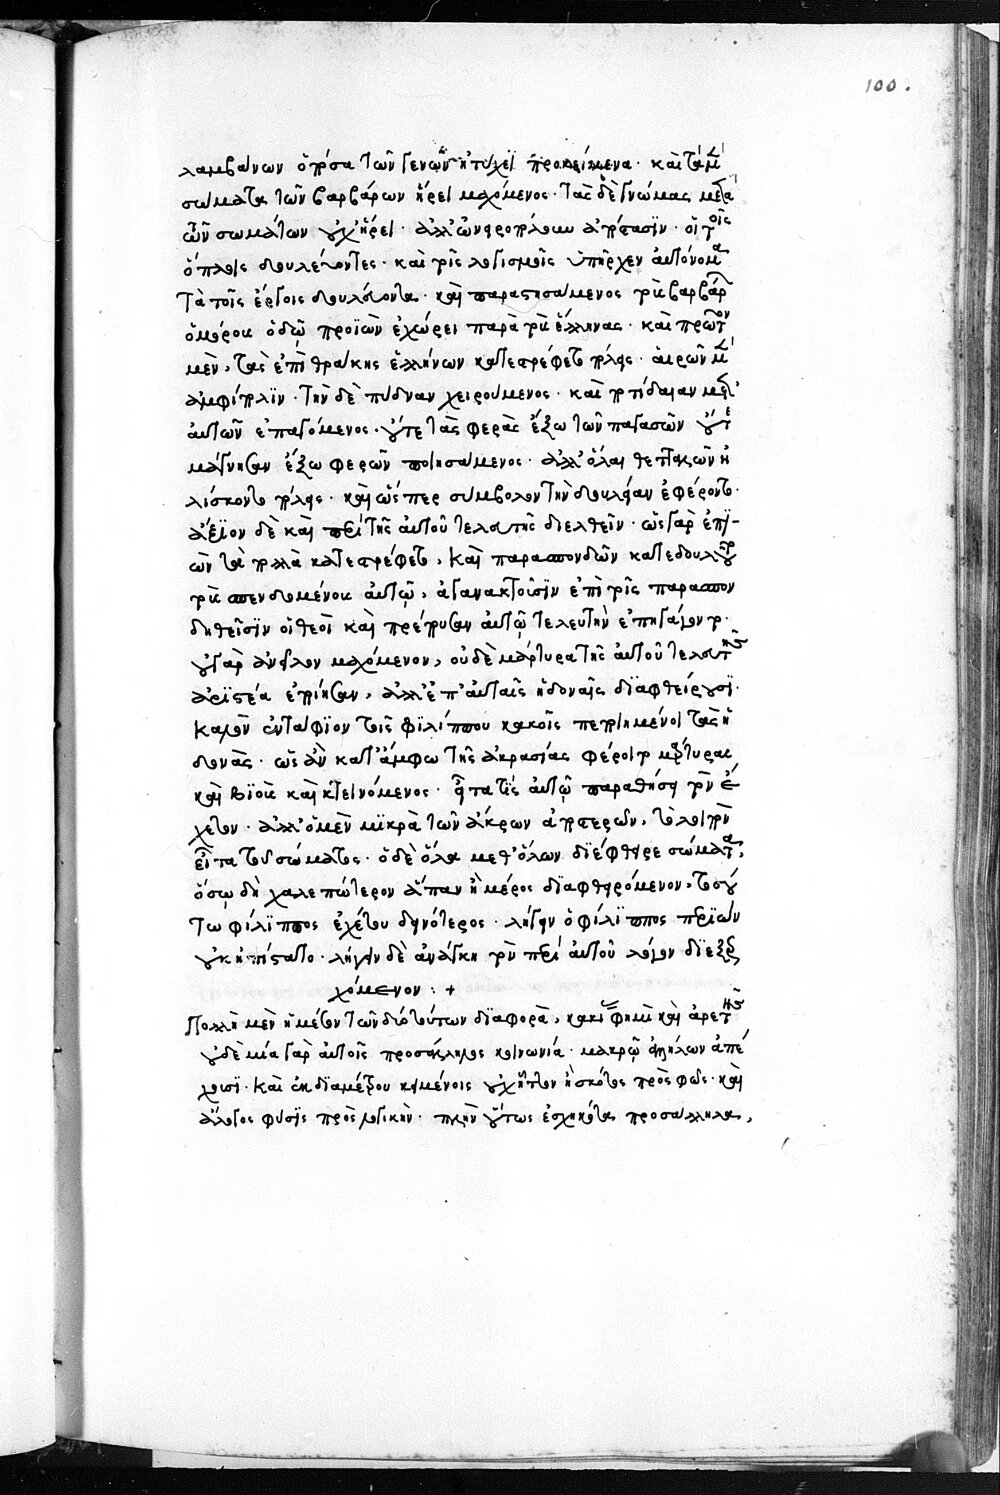 100.
λαμβάνων ὁπόσα τῶν γενῶν ἠτύχει προκείμενα· καὶ τὰ μὲν
σώματα τῶν βαρβάρων ᾕρει μαχόμενος· τὰς δὲ γνώμας μετὰ
τῶν σωμάτων οὐχ ᾕρει· ἀλλ' ὠνειροπόλουν ἀπόστασιν· οἱ τοῖς
ὅπλοις δουλεύοντες· καὶ τοῖς λογισμοῖς ὑπῆρχεν αὐτόνομα
τὰ τοῖς ἔργοις δουλεύοντα· καὶ παραστησάμενος τοὺς βαρβάρους
ὁμόρους ὁδῷ προϊὼν ἐχώρει παρὰ τοὺς ἕλληνας· καὶ πρῶτον
μὲν, τὰς ἐπὶ θράκης ἑλλήνων κατεστρέφετο πόλεις· αἱρῶν μὲν
ἀμφίπολιν· τὴν δὲ πύδναν χειρούμενος· καὶ ποτίδαιαν μετ'
αὐτῶν ἐπαγόμενος· οὔτε τὰς φερὰς ἔξω τῶν παγασῶν οὔτε
μάγνησαν ἔξω φερῶν ποιησάμενος· ἀλλ' ὅλαι θετταλῶν ἡ
λίσκοντο πόλεις· καὶ ὥσπερ σύμβολον τὴν δουλείαν ἐφέροντο·
ἄξιον δὲ καὶ περὶ τῆς αὐτοῦ τελευτῆς διελθεῖν· ὡς γὰρ ἐπι-
ὼν τὰ πολλὰ κατεστρέφετο, καὶ παρασπονδῶν κατεδουλοῦτο
τοὺς σπενδομένους αὐτῷ, ἀγανακτοῦσιν ἐπὶ τοῖς παρασπον
δηθεῖσιν οἱ θεοὶ καὶ πρέπουσαν αὐτῷ τελευτὴν ἐπηγάγοντο·
οὐ γὰρ ἀνεῖλον μαχόμενον, οὐδὲ μάρτυρα τῆς αὐτοῦ τελευτῆς
ἀριστεία ἐποίησαν, ἀλλ' ἐπ' αὐταῖς ἡδοναῖς διαφθείρουσι·
καλὸν ἐντάφιον τοῖς φιλίππου κακοῖς πεποιημένοι τὰς ἡ
δονάς· ὡς ἂν κατ' ἄμφω τῆς ἀκρασίας φέροιτο μάρτυρας
καὶ βιοὺς καὶ κτεινόμενος·
χετον· ἀλλ' ὁ μὲν μικρὰ τῶν ἄκρων ἀποστερῶν, τὸ λοιπὸν
εἴα τοῦ σώματος· ὁ δὲ ὅλα μεθ' ὅλων διέφθειρε σώματα,
ὅσῳ δὴ χαλεπώτερον ἅπαν ἢ μέρος διαφθειρόμενον, τοσού
τω φίλιππος ἐχέτου δεινότερος· λήγειν ὁ φίλιππος προϊὼν
οὐκ ἠπίστατο· λήγειν δὲ ἀνάγκη τὸν περὶ αὐτοῦ λόγον διεξερ
χόμενον : +
Πολλὴ μὲν ἡ μέσον τῶν διὸ τούτων διαφορὰ, κακίας φημὶ καὶ ἀρετῆς
οὐδὲ μία γὰρ αὐτοῖς προσάλληλος κοινωνία· μακρῷ ἀλλήλων ἀπέ
χουσι· καὶ ἐκ διαμέτρου κειμένοις οὐχ ἧττον ἢ σκότος πρὸς φῶς· καὶ
ἄλογος φύσις πρὸς λογικὴν· πλὴν οὕτως ἐσχηκότα προσάλληλα,